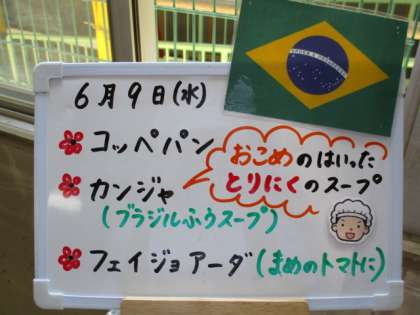 6月9日(水)
コッペパン
カンジャ
(ブラジルふうスープ)
おこめのはいった
とりにくのスープ
フェイジョアーダ(まめのトマトに)